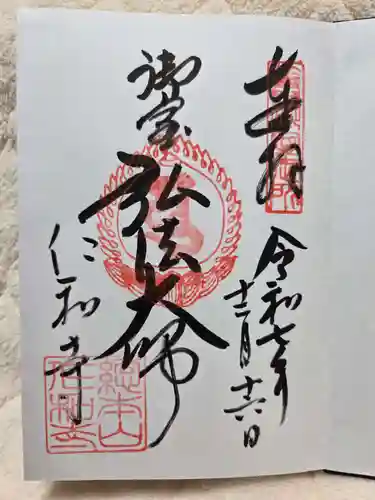 奉拝
令和七年
十二月十六日
御室
弘法大師
仁和寺
総本山
仁和寺